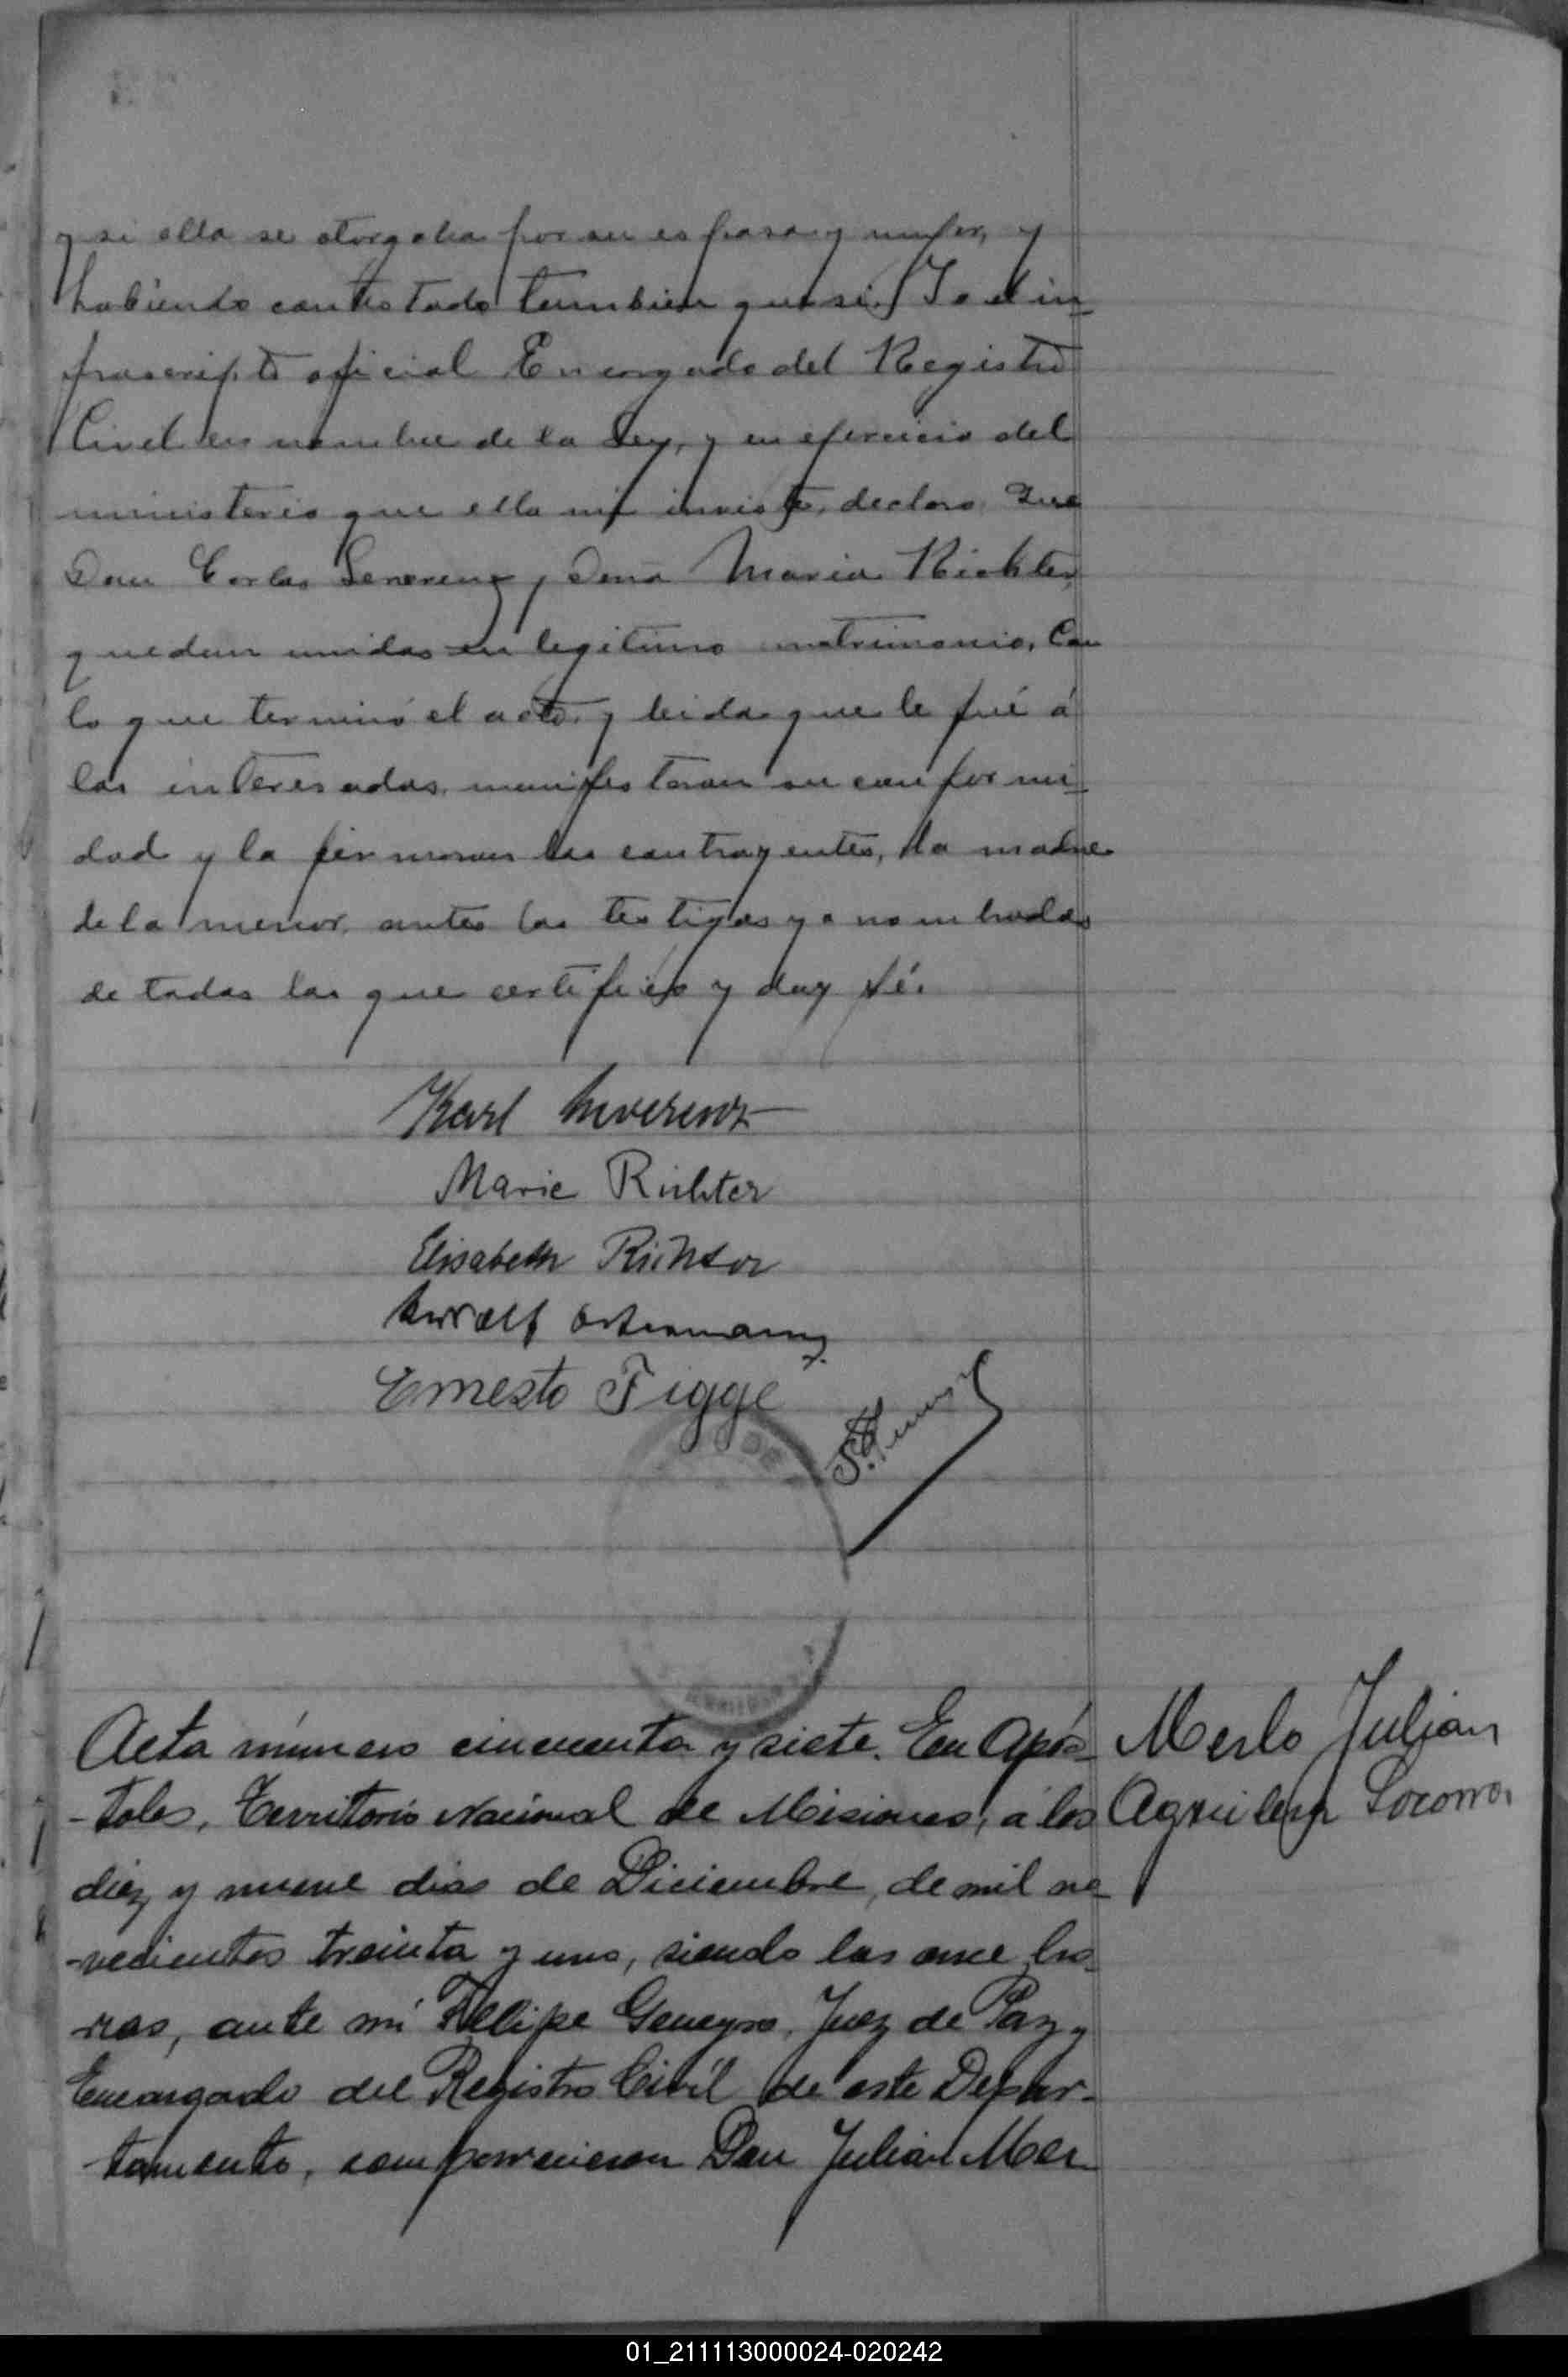 y si ella se otorgaba por su esposa y mujer, y
habiendo contestado tambien que si. Yo el in-
frascripto oficial Encargado del Registro
Civil en nombre de la Ley, y en ejercicio del
ministerio que ella me inviste, declaro que
Don Carlos y Dona Maria Richter,
quedan unidos en legitimo matrimonio. Con
lo que terminó el acto, y leida que le fué á
los interesados, manifestaron su conformi-
dad y la firmaron los contrayentes, la madre
de la menor, antes los testigos ya nombrados
de todos los que certifico y doy fé.
Karl
Marie Richter
Elisabeth Richter
Ernesto Figge
DE
Acta número cincuenta y siete. En Após-
-toles, Territorio Nacional de Misiones, á los
diez y nueve dias de Diciembre, de mil no-
-vecientos treinta y uno, siendo las once ho-
-ras, ante mí Felipe Geneyro, Juez de Paz y
Encargado del Registro Civil de este Depar-
-tamento, comparecieron Don Julian Mer-
Merlo Julian
Aguilera Socorro
01_211113000024-020242